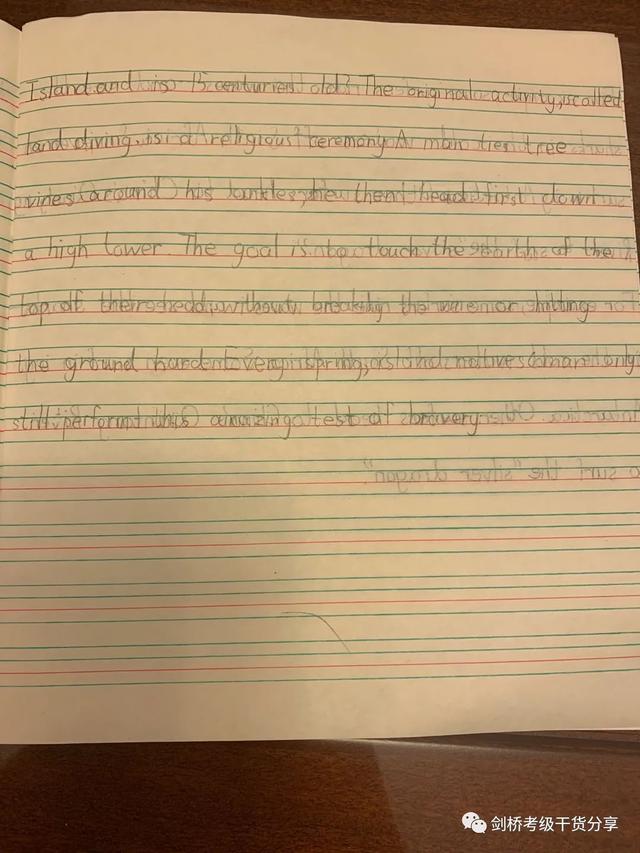 Island and is 15 centuries old. The original activity, is called
land diving, is a religious ceremony. A man ties tree
vines around his ankles, he then head first down
a high tower. The goal is to touch the earth of the
top of the head, without breaking the vine or hitting
the ground hard. Every spring, island natives
still perform this amazing test of bravery
surf the "silver dragon".
剑桥考级干货分享